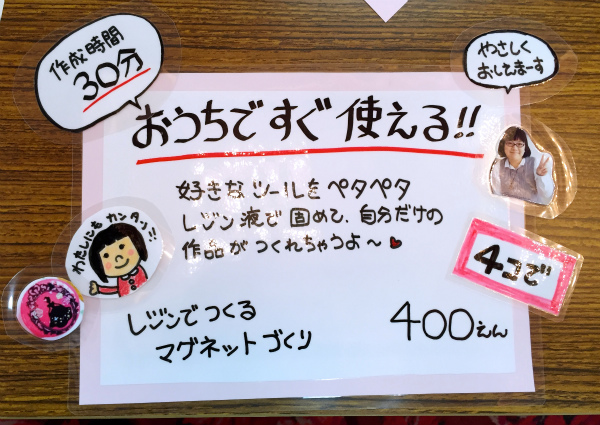 作成時間
30分
やさしく
おしえてまーす
おうちですぐ使える!!
好きなシールをペタペタ
レジン液で固めて、自分だけの
作品がつくれちゃうよ～♥
わたしにもカンタン!!
4コで
レジンでつくる
マグネットづくり
400えん